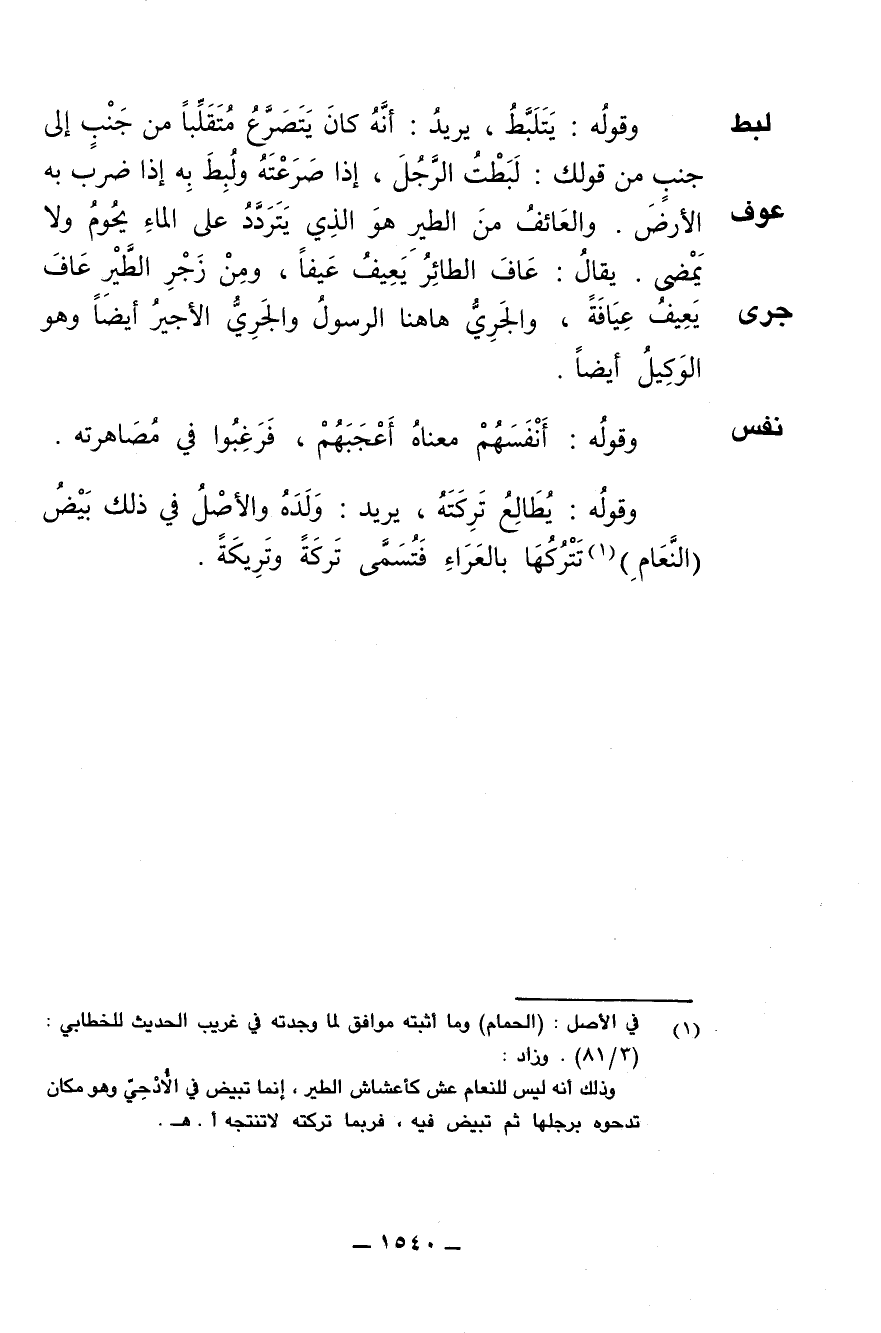 لبط وقولُه : يَتَلَبَّطُ ، يريدُ : أنَّهُ كانَ يَتَصَرَّعُ مُتَقَلِّباً من جَنْبٍ إلى
جنبٍ من قولك : لَبَطْتُ الرَّجُلَ ، إذا صَرَعْتَهُ ولُبِطَ بِه إذا ضرب به
عوف الأرضَ . والعَائفُ منَ الطير هوَ الذِي يَتَرَدَّدُ على الماءِ يحُومُ ولا
يَمْضى . يقالُ : عَافَ الطائِرُ يَعِيفُ عَيفاً ، ومِنْ زَجْرِ الطَّيْرِ عَافَ
جرى يَعِيفُ عِيَافَةً ، والجَرِيُّ هاهنا الرسولُ والجَرِيُّ الأجيرُ أيضاً وهو
الوَكِيلُ أيضاً .
نفس وقولُه : أَنْفَسَهُمْ معناهُ أَعْجَبَهُمْ ، فَرَغِبُوا في مُصَاهرته .
وقولُه : يُطَالِعُ تَرِكَتَهُ ، يريد : وَلَدَهُ والأصْلُ في ذلك بَيْضُ
(النَّعَامِ)(١) تَتْرُكُهَا بالعَرَاءِ فَتُسَمَّى تَركَةً وتَرِيكَةً .
(١) في الأصل : (الحمام) وما أثبته موافق لما وجدته في غريب الحديث للخطابي :
(٨١/٣) . وزاد :
وذلك أنه ليس للنعام عش كأعشاش الطير ، إنما تبيض في الأُدْحِيّ وهو مكان
تدحوه برجلها ثم تبيض فيه ، فربما تركته لاتنتجه أ . هـ .
— ١٥٤٠ —